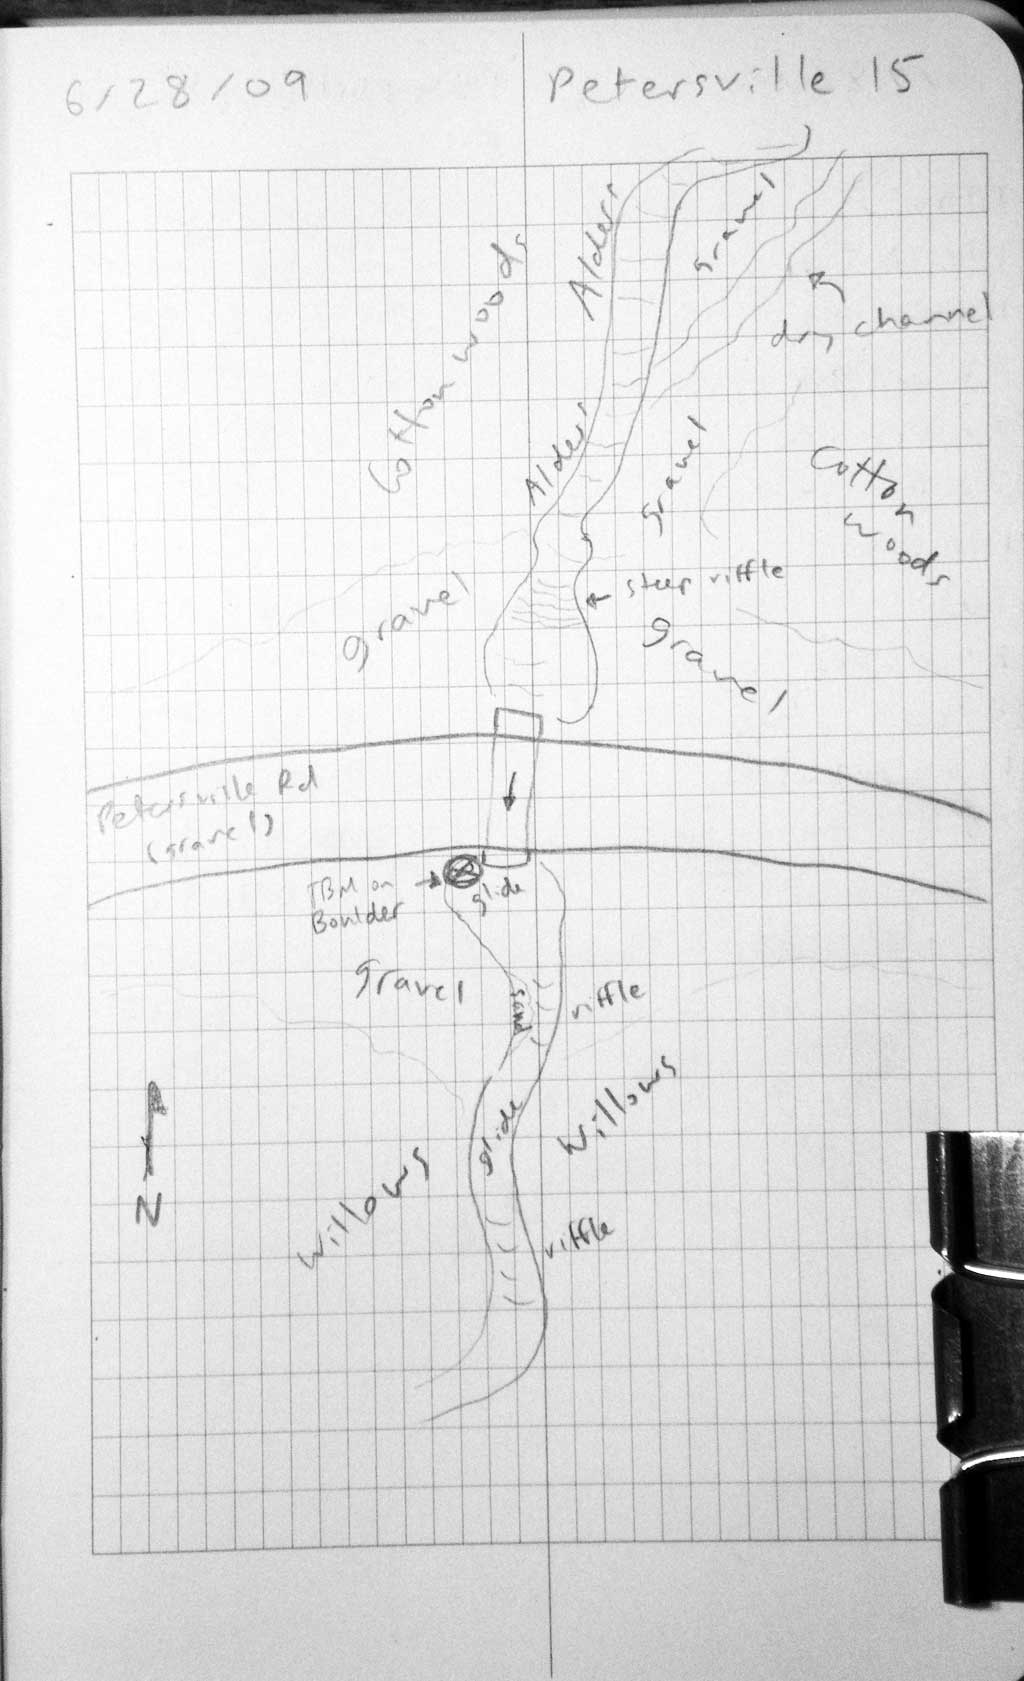 6/28/09
Petersville 15
Alders
gravel
Cottonwoods
dry channel
Alders
gravel
Cotton
woods
steep riffle
gravel
gravel
Petersville Rd
(gravel)
TBM on
Boulder
glide
gravel
sand
riffle
glide
willows
willows
N
riffle